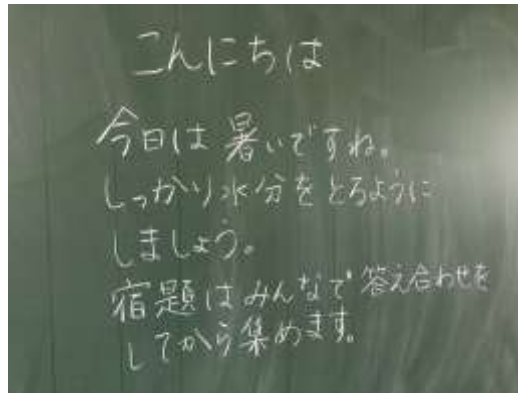 こんにちは
今日は暑いですね。
しっかり水分をとるように
しましょう。
宿題はみんなで答え合わせを
してから集めます。